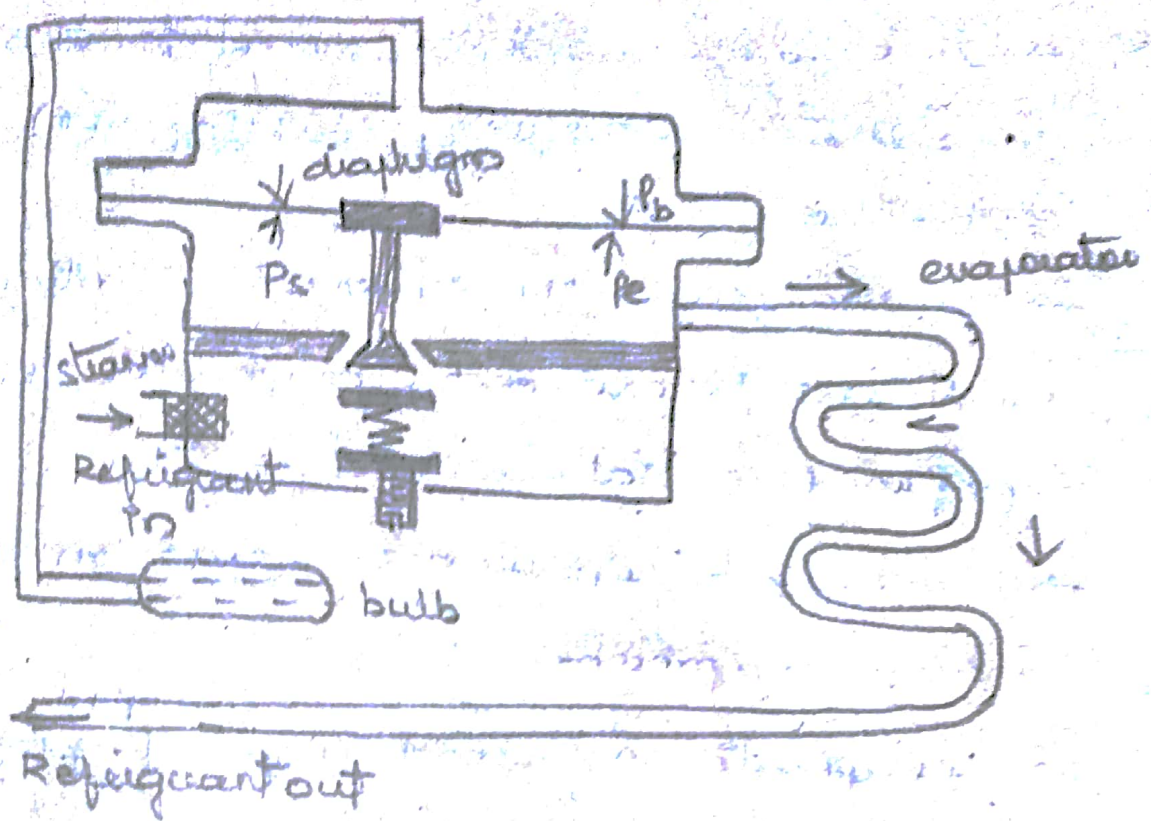 diaphigm
Pb
Ps
Pe
evaporator
Refrigurant
in
bulb
Refriguant out